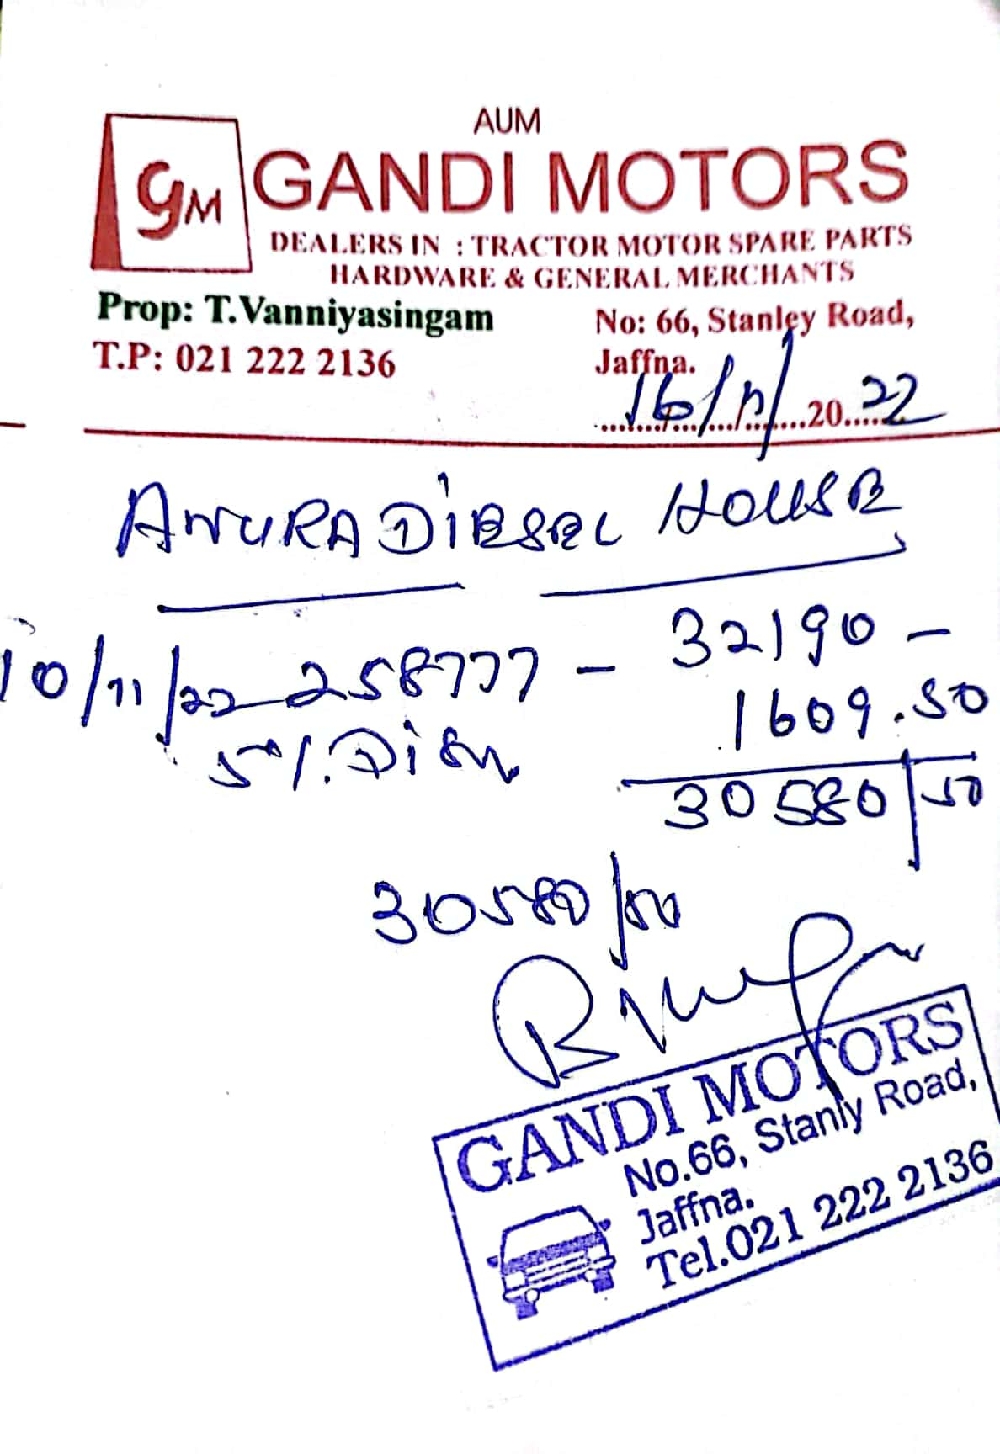 AUM
GM GANDI MOTORS
DEALERS IN : TRACTOR MOTOR SPARE PARTS
HARDWARE & GENERAL MERCHANTS
Prop: T.Vanniyasingam
T.P: 021 222 2136
No: 66, Stanley Road,
Jaffna.
16/11/2022
ANURA DIESEL HOUSE
10/11/22 258777 - 32190 -
5%. Disc 1609.50
30580/50
30580/50
GANDI MOTORS
No.66, Stanly Road,
Jaffna.
Tel.021 222 2136